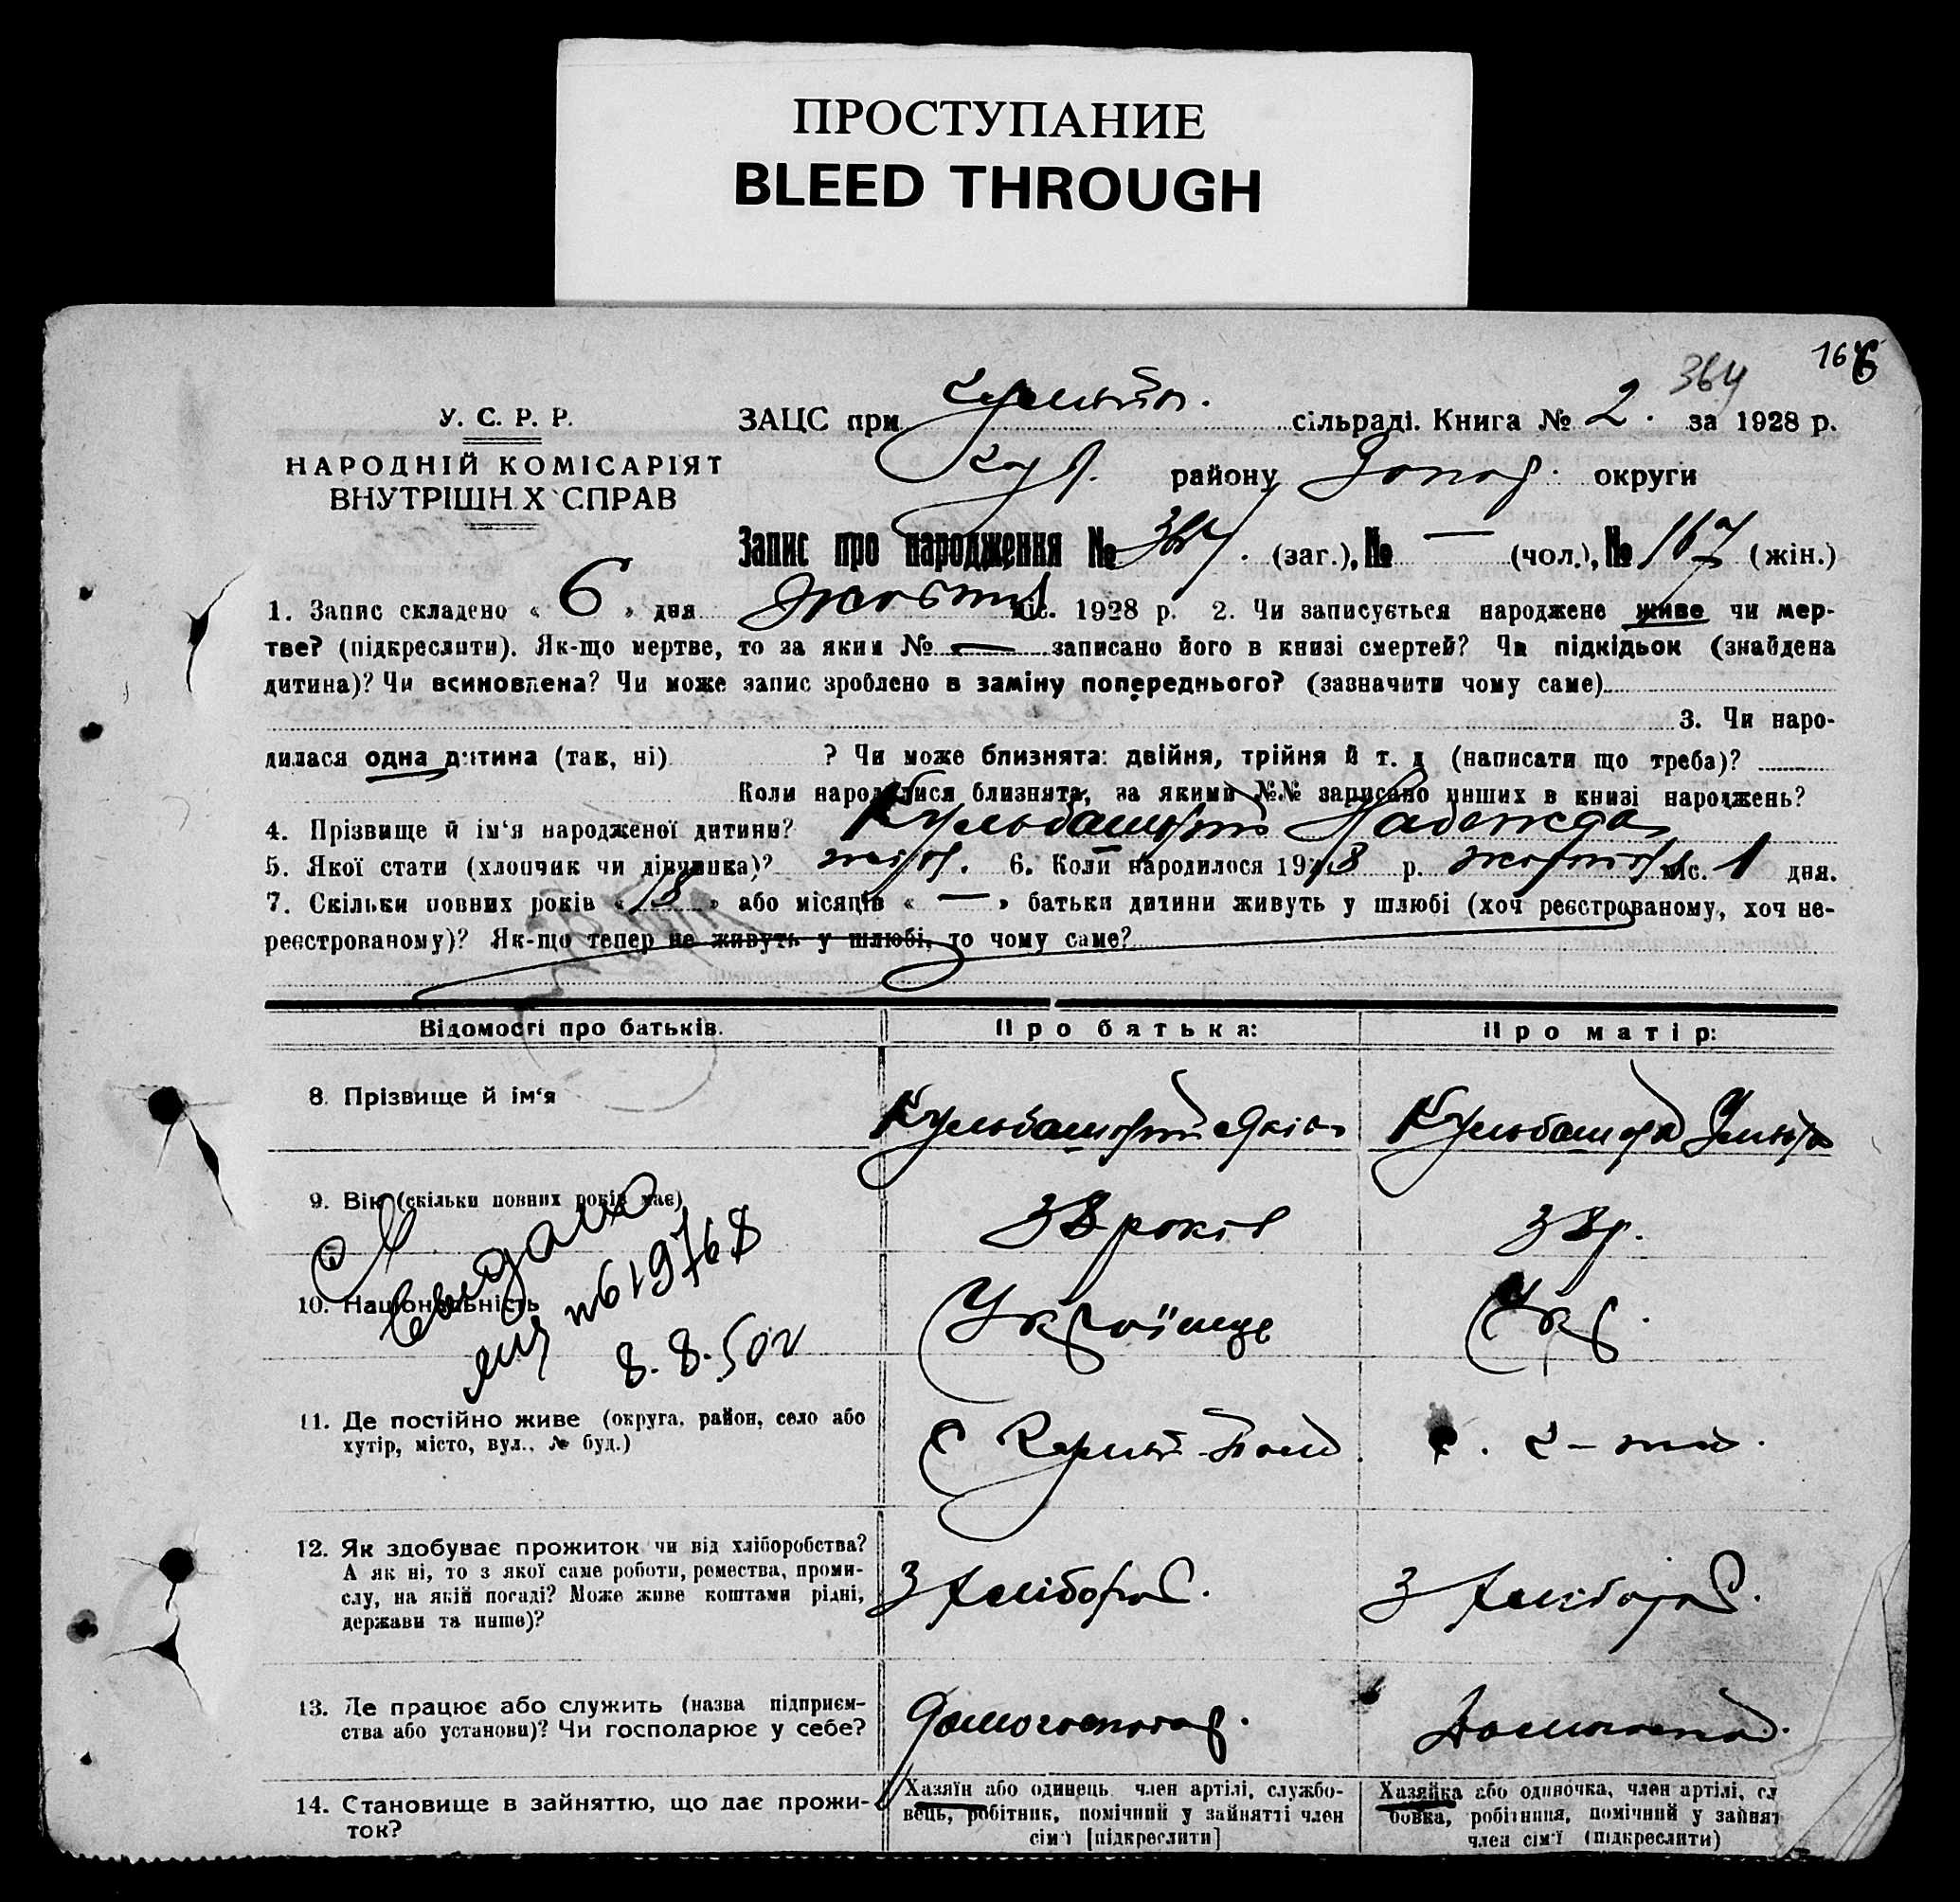 ПРОСТУПАНИЕ
BLEED THROUGH
166
364
У. С. Р. Р.
НАРОДНІЙ КОМІСАРІЯТ
ВНУТРІШН Х СПРАВ
ЗАЦС при сільраді. Книга № 2. за 1928 р.
району Запор. округи
Запис про народження № 364. (заг.), № — (чол.), № 167 (жін.)
1. Запис складено « 6 » дня жовтня міс. 1928 р. 2. Чи записується народжене живе чи мер-
тве? (підкреслити). Як-що мертве, то за яким № — записано його в книзі смертей? Чи підкідьок (знайдена
дитина)? Чи всиновлена? Чи може запис зроблено в заміну попереднього? (зазначити чому саме)
3. Чи наро-
дилася одна дитина (так, ні) ? Чи може близнята: двійня, трійня й т. д (написати що треба)?
Коли народилися близнята, за якими №№ записано инших в книзі народжень?
4. Прізвище й ім‘я народженої дитини? Кульбашний Надежда
5. Якої стати (хлопчик чи дівчинка)? 6. Коли народилося 1928 р. жовтня міс. 1 дня.
7. Скільки повних років « 18 » або місяців « — » батьки дитини живуть у шлюбі (хоч реєстрованому, хоч не-
реєстрованому)? Як-що тепер не живуть у шлюбі, то чому саме?
Відомості про батьків. Про батька: Про матір:
8. Прізвище й ім‘я Кульбашний Яків Кульбашна Ульяна
9. Вік (скільки повних років має) 38 років 38 р.
10. Національність Українце Укр.
№ 619768
8.8.50 г
11. Де постійно живе (округа, район, село або
хутір, місто, вул., № буд.)
с. с.
12. Як здобуває прожиток чи від хліборобства?
А як ні, то з якої саме роботи, ремества, проми-
слу, на якій посаді? Може живе коштами рідні,
держави та инше)?
З хлібороб. З хлібороб.
13. Де працює або служить (назва підприєм-
ства або установи)? Чи господарює у себе?
Домогосподар. Домогоспод.
14. Становище в зайняттю, що дає прожи-
ток?
Хазяїн або одинець член артілі, службо-
вець, робітник, помічний у зайнятті член
сім‘ї [підкреслити]
Хазяйка або одиночка, член артілі, сл
бовка, робітниця, помічний у зайнят
член сім‘ї (підкреслити)